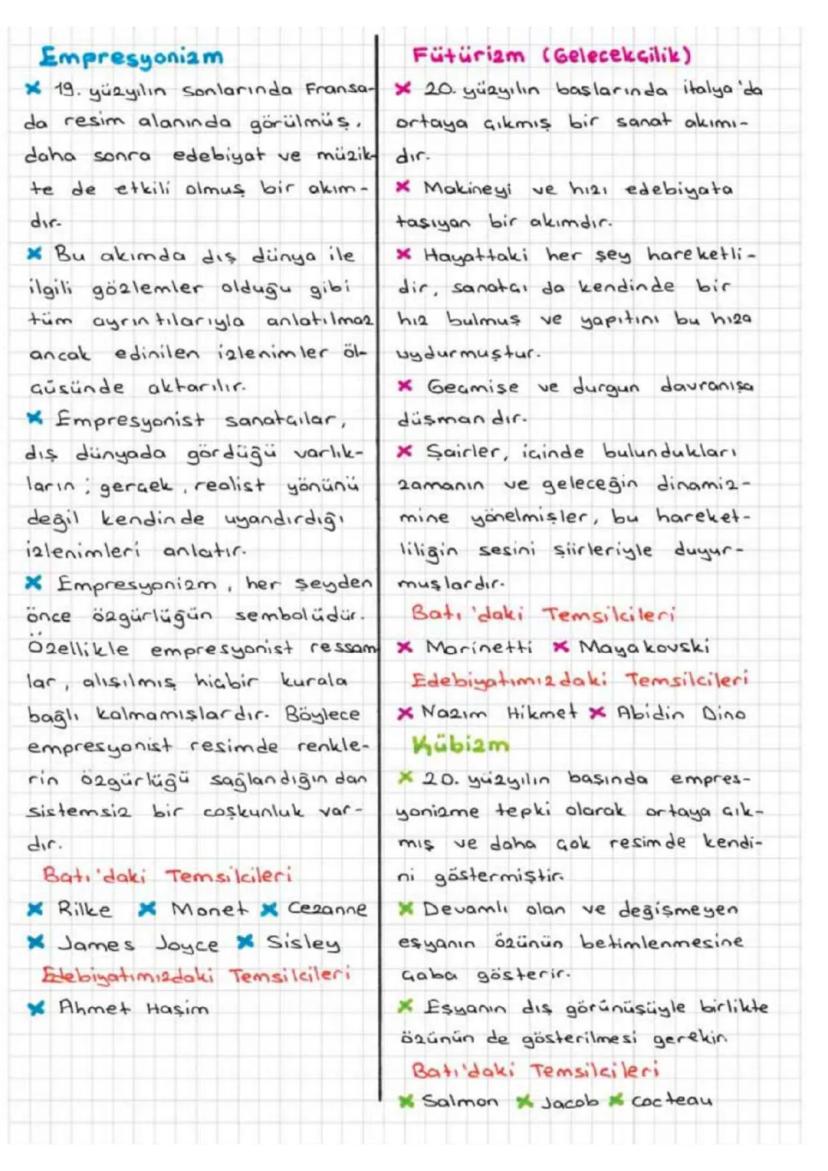 Empresyonizm
× 19. yüzyılın sonlarında Fransa-
da resim alanında görülmüş,
daha sonra edebiyat ve müzik-
te de etkili olmuş bir akım-
dır.
× Bu akımda dış dünya ile
ilgili gözlemler olduğu gibi
tüm ayrıntılarıyla anlatılmaz
ancak edinilen izlenimler öl-
çüsünde aktarılır.
× Empresyonist sanatçılar,
dış dünyada gördüğü varlık-
ların; gerçek, realist yönünü
değil kendinde uyandırdığı
izlenimleri anlatır.
× Empresyonizm, her şeyden
önce özgürlüğün sembolüdür.
Özellikle empresyonist ressam
lar, alışılmış hiçbir kurala
bağlı kalmamışlardır. Böylece
empresyonist resimde renkle-
rin özgürlüğü sağlandığından
sistemsiz bir coşkunluk var-
dır.
Batı'daki Temsilcileri
× Rilke × Monet × Cezanne
× James Joyce × Sisley
Edebiyatımızdaki Temsilcileri
× Ahmet Haşim
Fütürizm (Gelecekçilik)
× 20. yüzyılın başlarında italya'da
ortaya çıkmış bir sanat akımı-
dır.
× Makineyi ve hızı edebiyata
taşıyan bir akımdır.
× Hayattaki her şey hareketli-
dir, sanatçı da kendinde bir
hız bulmuş ve yapıtını bu hıza
uydurmuştur.
× Geçmişe ve durgun davranışa
düşmandır.
× Şairler, içinde bulundukları
zamanın ve geleceğin dinamiz-
mine yönelmişler, bu hareket-
liliğin sesini şiirleriyle duyur-
muşlardır.
Batı'daki Temsilcileri
× Marinetti × Mayakovski
Edebiyatımızdaki Temsilcileri
× Nazım Hikmet × Abidin Dino
Kübizm
× 20. yüzyılın başında empres-
yonizme tepki olarak ortaya çık-
mış ve daha çok resimde kendi-
ni göstermiştir.
× Devamlı olan ve değişmeyen
eşyanın özünün betimlenmesine
çaba gösterir.
× Eşyanın dış görünüşüyle birlikte
özünün de gösterilmesi gerekir.
Batı'daki Temsilcileri
× Salmon × Jacob × Cocteau